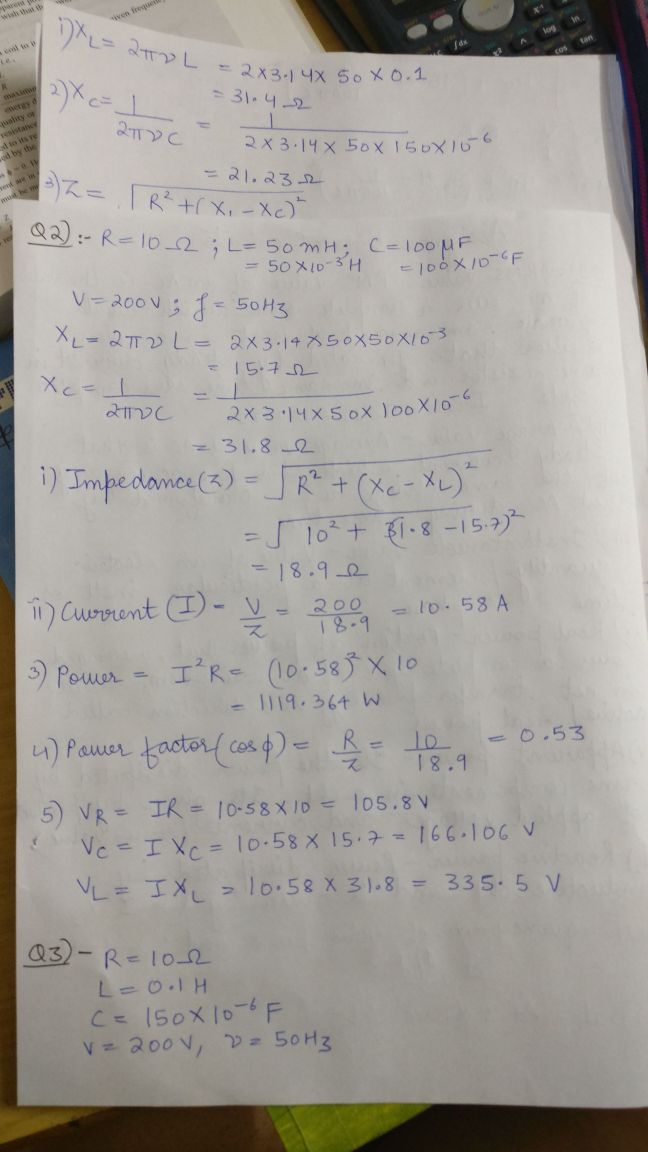 1) X_L = 2πνL = 2×3.14×50×0.1
= 31.4 Ω
2) X_C = 1/2πνC = 1/2×3.14×50×150×10⁻⁶
= 21.23 Ω
3) Z = √R²+(X_L-X_C)²
Q2):- R=10Ω ; L=50mH; C=100μF
=50×10⁻³H =100×10⁻⁶F
V=200V ; f=50Hz
X_L = 2πνL = 2×3.14×50×50×10⁻³
= 15.7 Ω
X_C = 1/2πνC = 1/2×3.14×50×100×10⁻⁶
= 31.8 Ω
i) Impedance(z) = √R²+(X_C-X_L)²
= √10²+(31.8-15.7)²
= 18.9 Ω
ii) Current (I) = V/Z = 200/18.9 = 10.58 A
3) Power = I²R = (10.58)²×10
= 1119.364 W
4) Power factor(cosφ) = R/Z = 10/18.9 = 0.53
5) V_R = IR = 10.58×10 = 105.8V
V_C = I X_C = 10.58×15.7 = 166.106 V
V_L = I X_L = 10.58×31.8 = 335.5 V
Q3)- R=10Ω
L=0.1H
C=150×10⁻⁶F
V=200V, ν=50Hz